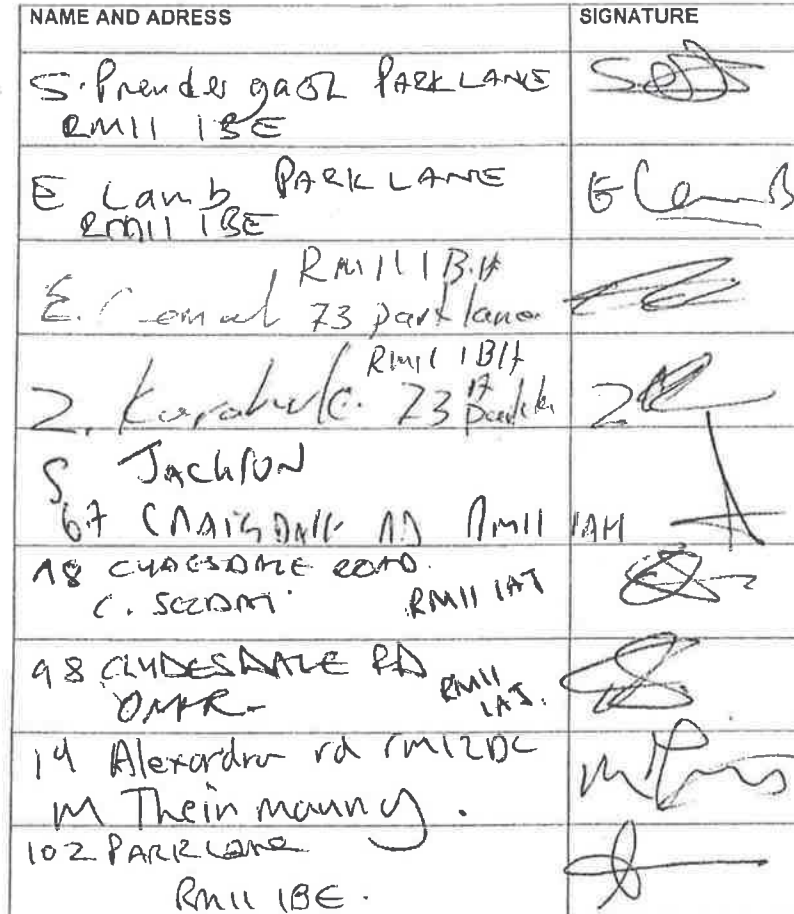 NAME AND ADRESS
SIGNATURE
S. Prendergast PARK LANE
RM11 1BE
E Lamb PARK LANE
RM11 1BE
E Lamb
RM11 1BH
E. Cemal 73 park lane
RM11 1BH
Z. 73
Z
S JACKSON
67 CRAIGDALE RD RM11 1AH
98 CLYDESDALE ROAD
C. RM11 1AJ
98 CLYDESDALE RD
OMER RM11
1AJ.
14 Alexandra rd rm12DC
M Thein maung.
102 PARK LANE
RM11 1BE.